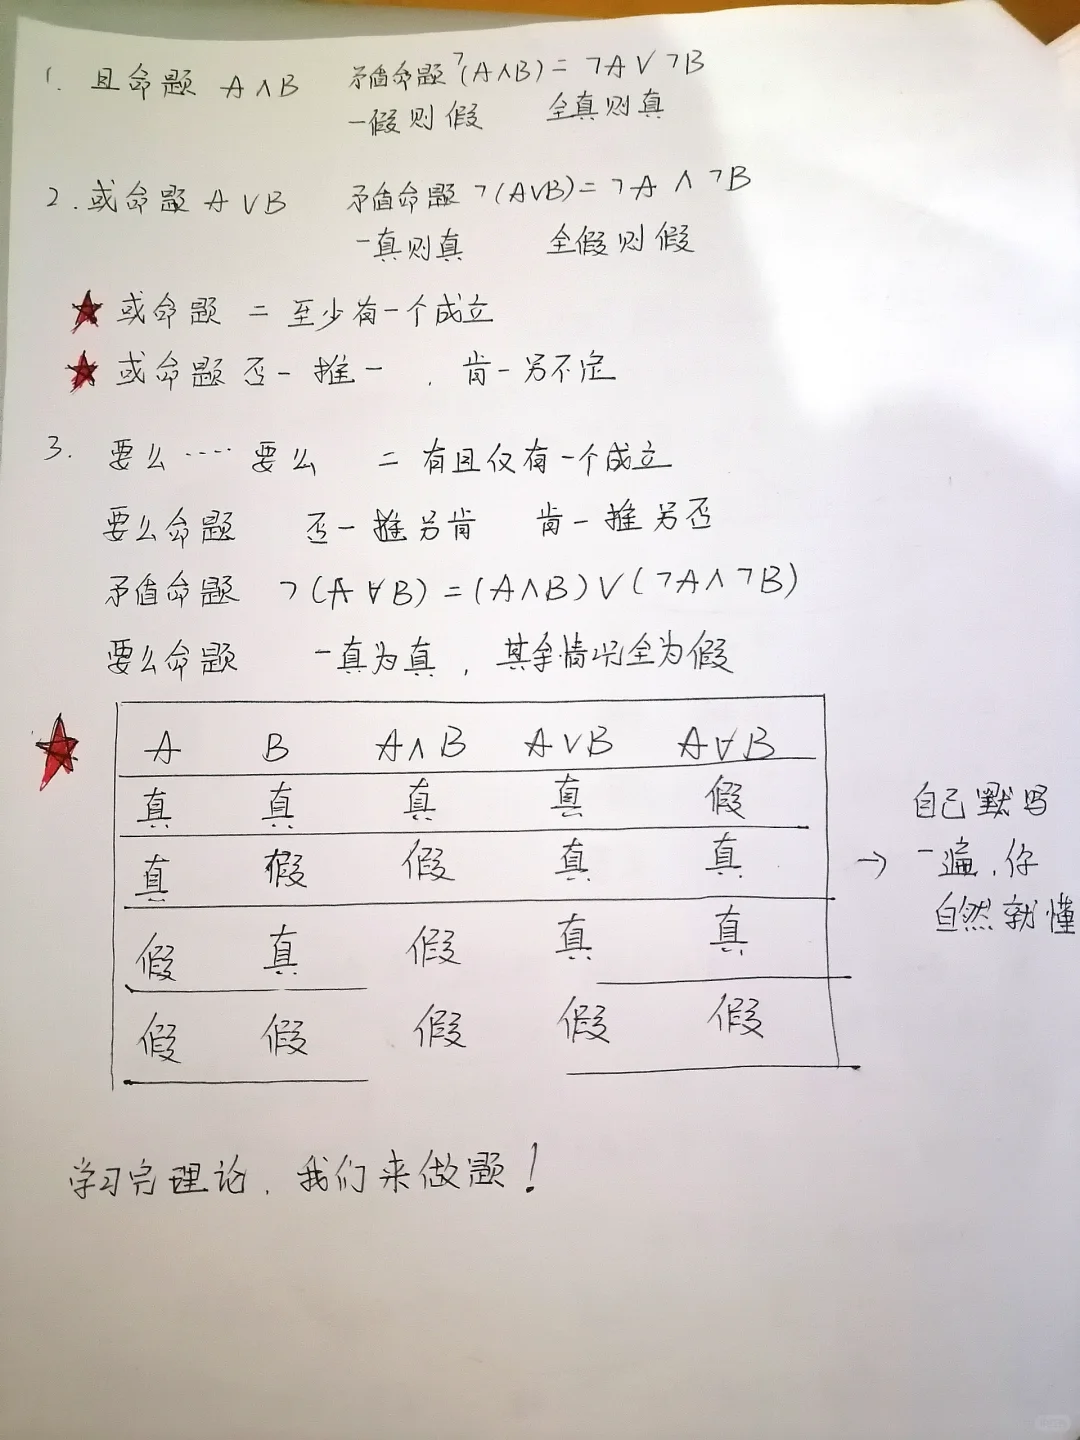 1. 且命题 A∧B 矛盾命题 ¬(A∧B) = ¬A∨¬B
一假则假 全真则真
2. 或命题 A∨B 矛盾命题 ¬(A∨B) = ¬A∧¬B
一真则真 全假则假
★ 或命题 = 至少有一个成立
★ 或命题 否一推一，肯一另不定
3. 要么····要么 = 有且仅有一个成立
要么命题 否一推另肯 肯一推另否
矛盾命题 ¬(A∀B) = (A∧B)∨(¬A∧¬B)
要么命题 一真为真，其余情况全为假
★ A B A∧B A∨B A∀B
真 真 真 真 假
真 假 假 真 真
假 真 假 真 真
假 假 假 假 假
→ 自己默写
一遍，你
自然就懂
学习完理论，我们来做题！